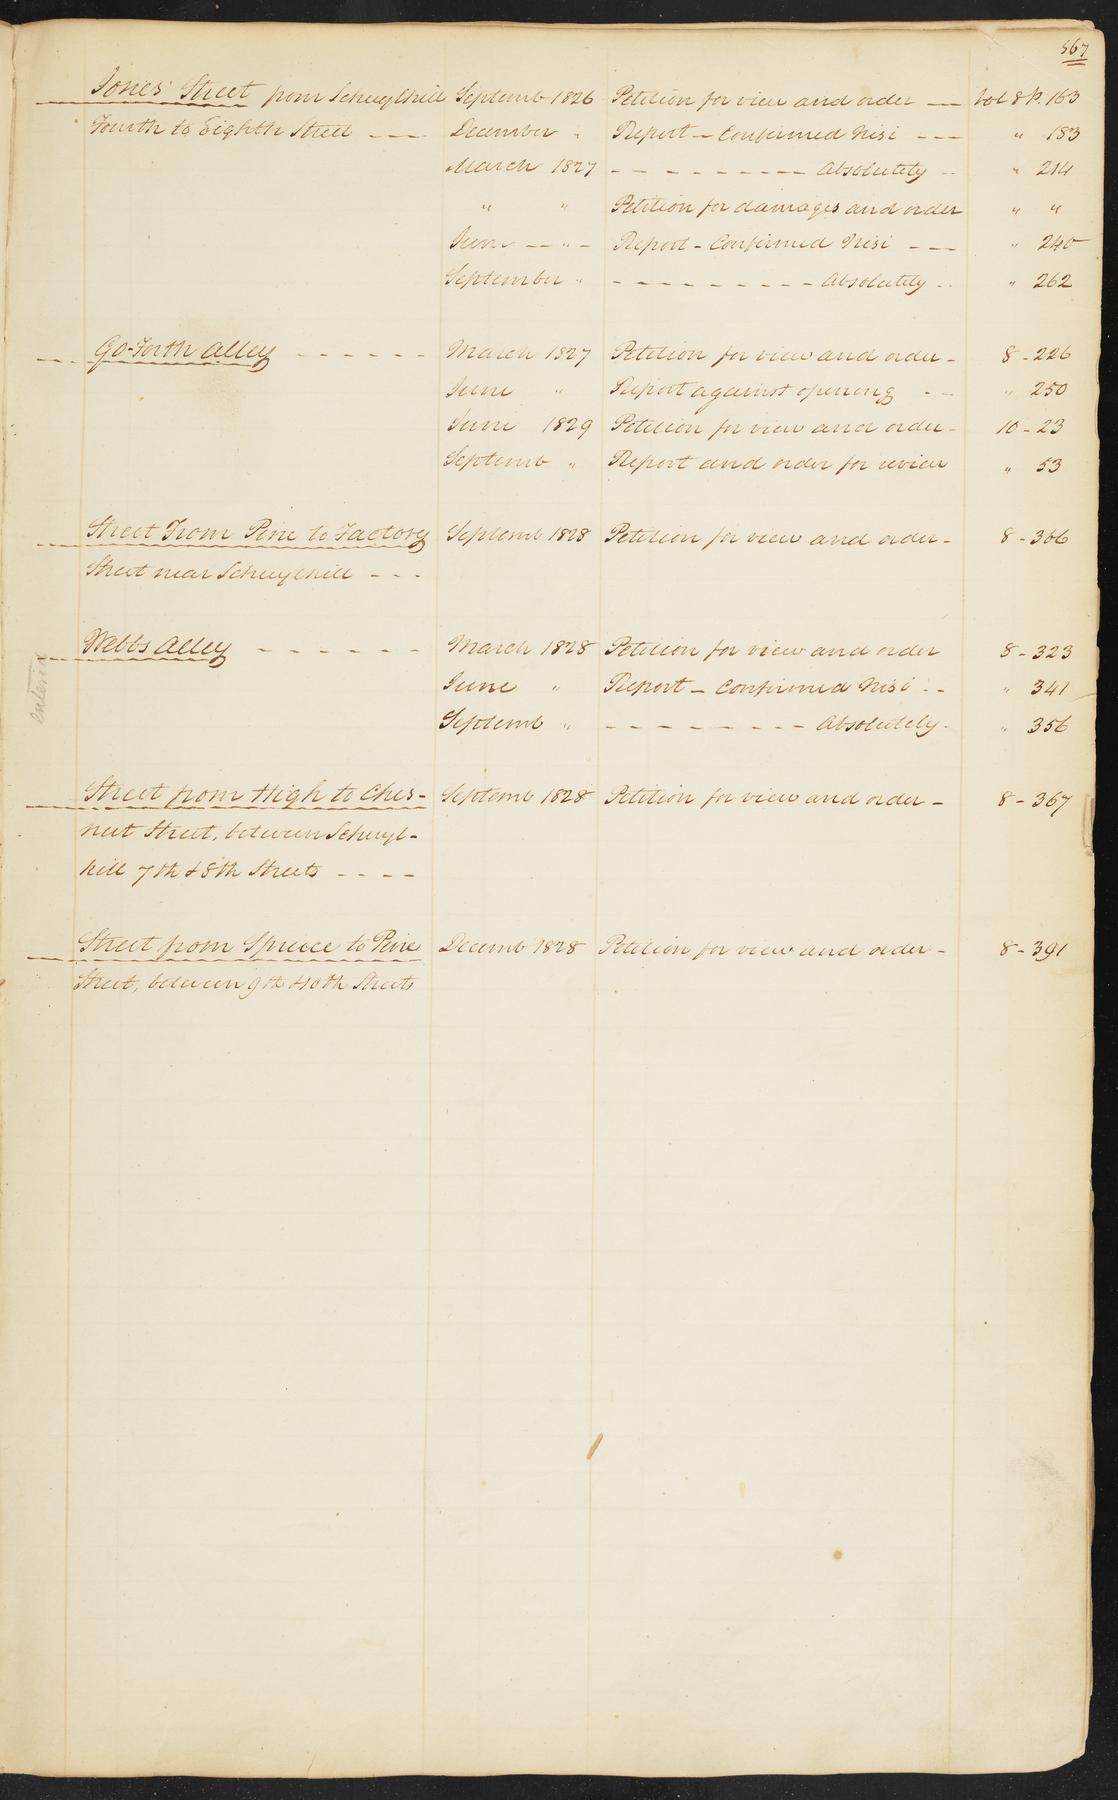 567
Jones' Street from Schuylkill Septemb 1826 Petition for view and order — Vol 8 P. 163
Fourth to Eighth Street - - - December " Report - Confirmed Nisi - - - " 183
March 1827 - - - - - - - - - - Absolutely - - " 214
" " Petition for damages and order " "
June - - " - Report - Confirmed Nisi - - - " 240
September " - - - - - - - - - - Absolutely - - " 262
Go-Forth Alley - - - - - - March 1827 Petition for view and order - 8 - 226
June " Report against opening - - " 250
June 1829 Petition for view and order - 10 - 23
Septemb " Report and order for review " 53
Street From Pine to Factory Septemb 1828 Petition for view and order - 8 - 366
Street near Schuylkill - - -
Webbs Alley - - - - - - March 1828 Petition for view and order 8 - 323
entered
June " Report - Confirmed Nisi - - " 341
Septemb " - - - - - - - - - Absolutely - " 356
Street from High to Ches- Septemb 1828 Petition for view and order - 8 - 367
nut Street, between Schuyl-
kill 7th & 8th Streets - - - -
Street from Spruce to Pine Decemb 1828 Petition for view and order - 8 - 391
Street, between 9th & 10th Streets